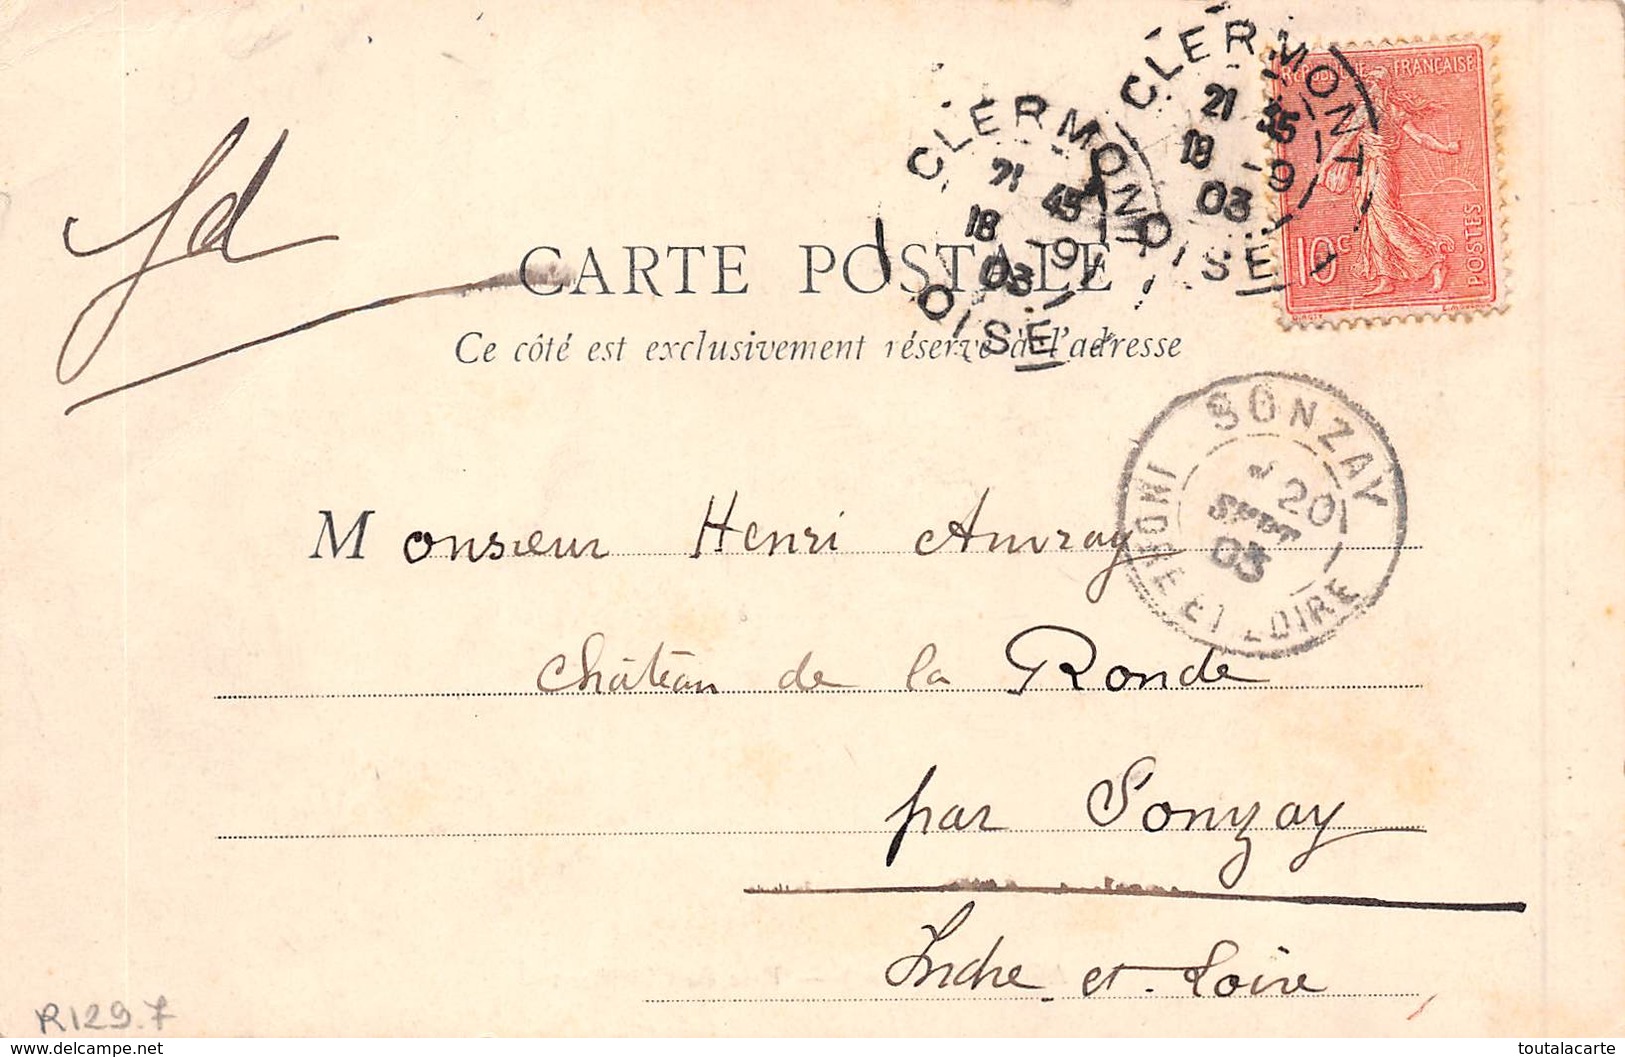 CLERMONT
21 35
18 -9
03
OISE
CLERMONT
21 45
18 -9
03
OISE
REPUBLIQUE FRANÇAISE
10c
POSTES
CARTE POSTALE
Ce côté est exclusivement réservé à l'adresse
SONZAY
20
SEPT
03
INDRE ET LOIRE
Monsieur Henri Amray
Château de la Ronde
par Sonzay
Indre et Loire
R129.7
www.delcampe.net
toutalacarte